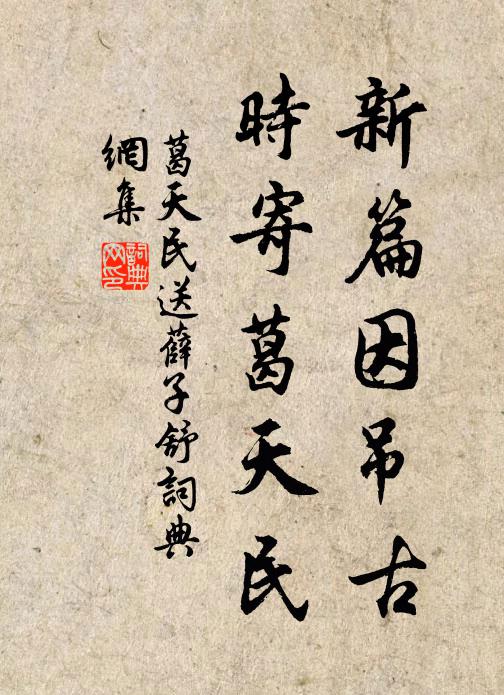 新篇因吊古
時寄葛天民
葛天民送薛子舒詞典
網集
詞典
网印